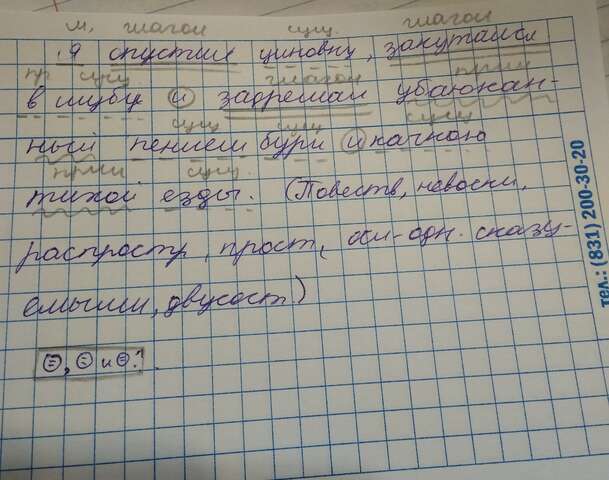 м. глагол сущ. глагол
Я спустил циновку, закутался
пр сущ глагол прич
в шубу и задремал убаюкан-
сущ сущ сущ
ный пением бури и качкою
прил сущ.
тихой езды. (Повеств, невоскл,
распростр, прост, осл-одн. сказу-
емыми, двусост)
⊜, ⊜ и ⊜.
тел.: (831) 200-30-20